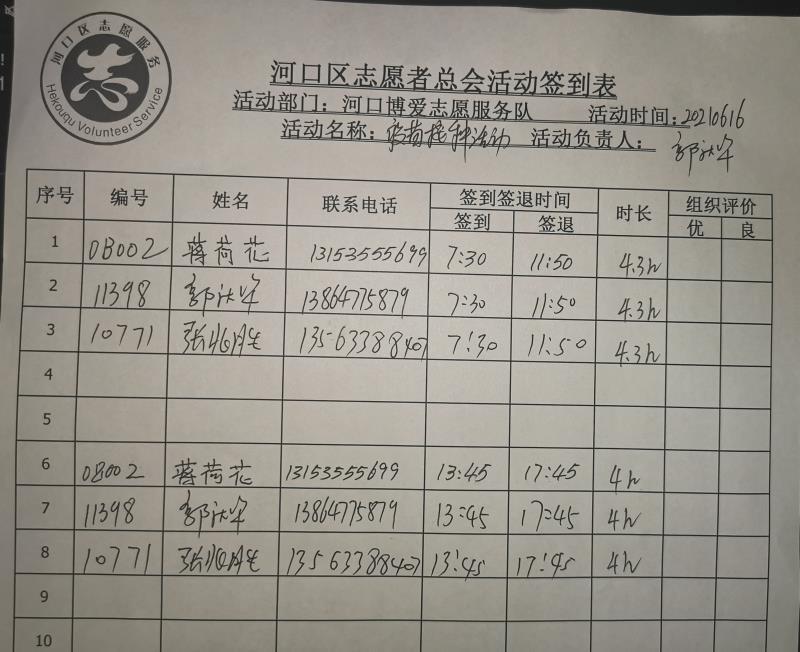 河口区志愿服务
志
Hekouqu Volunteer Service
河口区志愿者总会活动签到表
活动部门：河口博爱志愿服务队 活动时间：20210616
活动名称：疫苗接种活动 活动负责人：郭
序号 编号 姓名 联系电话 签到签退时间 时长 组织评价
签到 签退 优 良
1 0B002 蒋荷花 13153555699 7:30 11:50 4.3h
2 11398 郭 13864775879 7:30 11:50 4.3h
3 10771 张 13563388407 7:30 11:50 4.3h
4
5
6 0B002 蒋荷花 13153555699 13:45 17:45 4h
7 11398 郭 13864775879 13:45 17:45 4h
8 10771 张 13563388407 13:45 17:45 4h
9
10